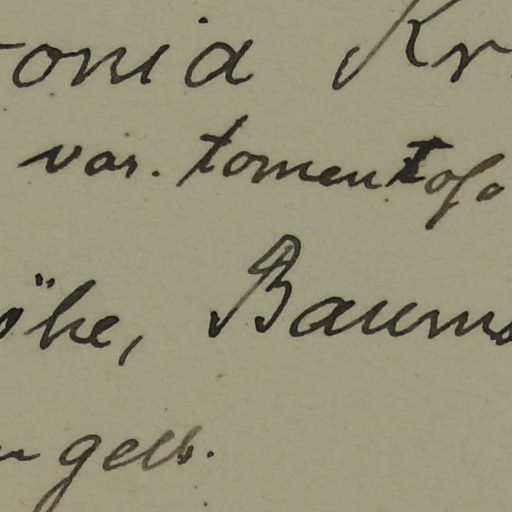 onia Kr
var. tomentosa
öhe, Baums
gelb.